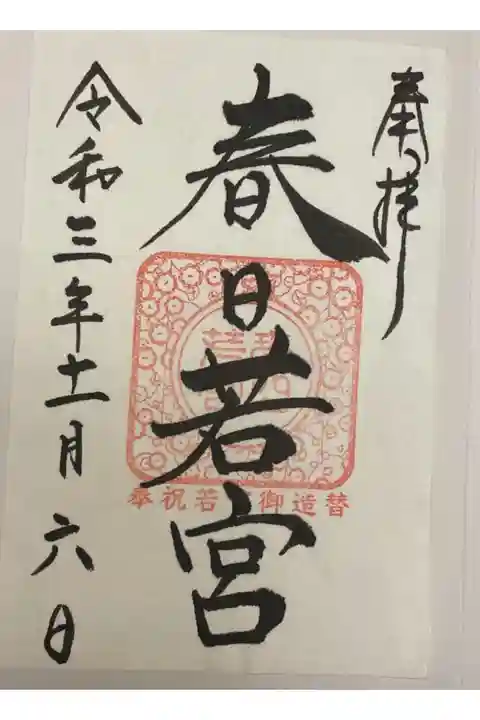 奉拝
春日若宮
令和三年十一月六日
奉祝若宮御造替